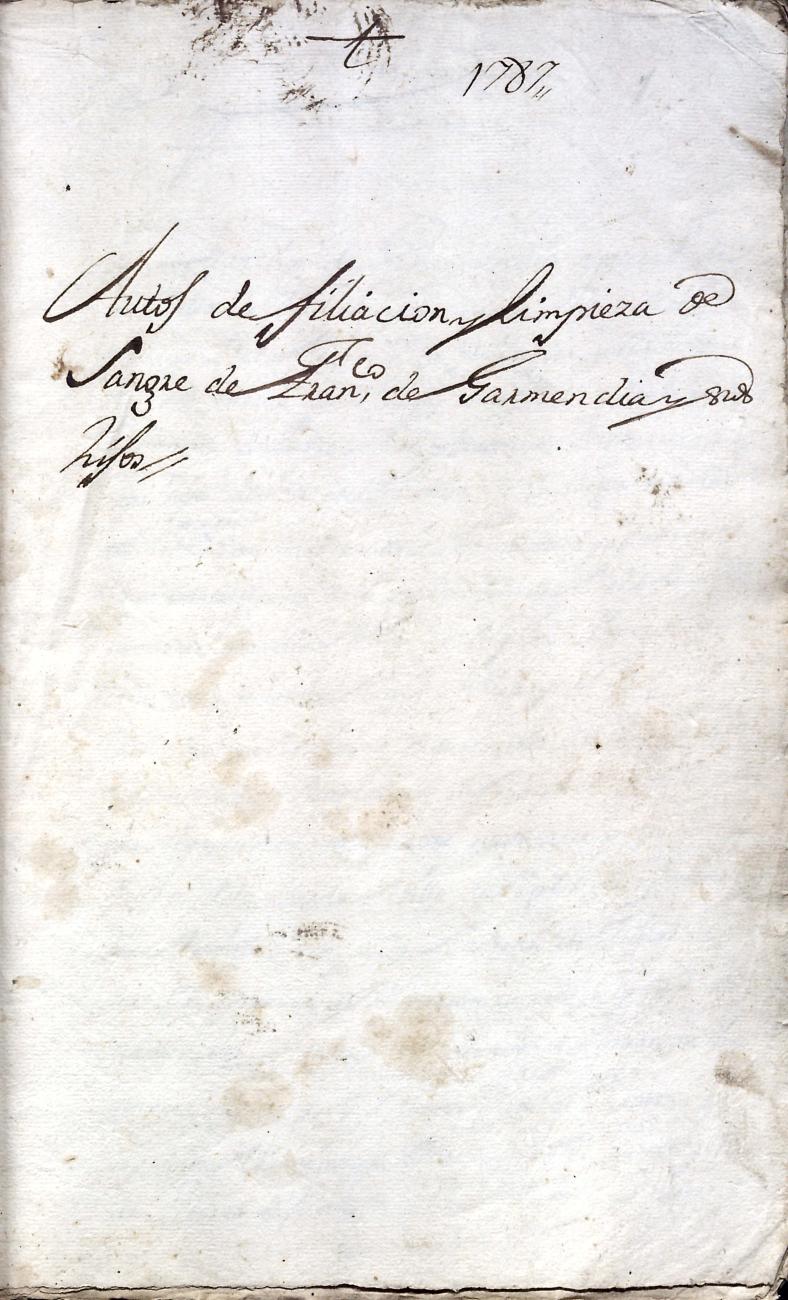 1787
Autos de filiacion y limpieza de
Sangre de Fran.co de Garmendia y sus
hijos